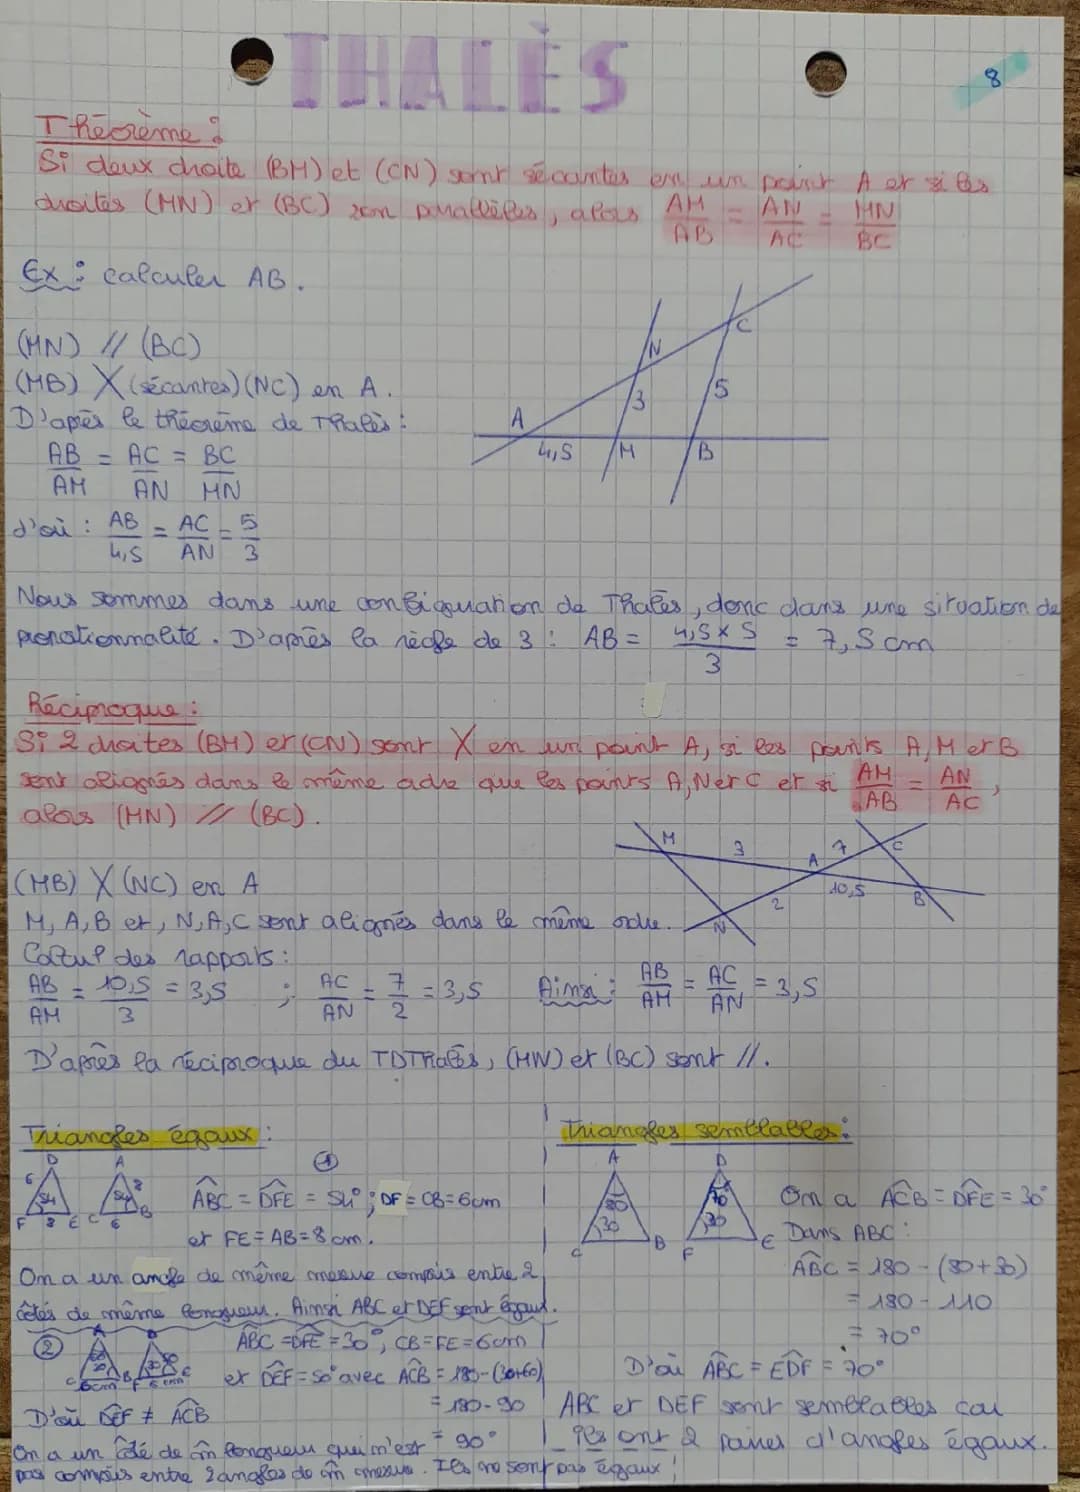 THALÈS
8
Théorème :
Si deux droite (BM) et (CN) sont sécantes en un point A et si les
droites (MN) et (BC) son parallèles, alors AM/AB = AN/AC = MN/BC
Ex : calculer AB.
(MN) // (BC)
(MB) X (sécantes) (NC) en A.
D'après le théorème de Thalès :
AB/AM = AC/AN = BC/MN
d'où : AB/4,5 = AC/AN = 5/3
A N C 3 5 4,5 M B
Nous sommes dans une configuration de Thalès, donc dans une situation de
proportionnalité. D'après la règle de 3 : AB = 4,5 x 5/3 = 7,5 cm
Réciproque :
Si 2 droites (BM) et (CN) sont X en un point A, si les points A, M et B
sont alignés dans le même odre que les points A, N et C et si AM/AB = AN/AC,
alors (MN) // (BC).
M 3 A 7 C 10,5 B 2 N
(MB) X (NC) en A
M, A, B et, N, A, C sont alignés dans le même ordre.
Calcul des rapports :
AB/AM = 10,5/3 = 3,5 ; AC/AN = 7/2 = 3,5 Ainsi : AB/AM = AC/AN = 3,5
D'après la réciproque du TDThalès, (MN) et (BC) sont //.
Triangles égaux :
D 6 54 F 8 E
A 54 8 C 6 B
①
ABC = DFE = 54° ; DF = CB = 6cm
et FE = AB = 8 cm.
On a un angle de même mesure compris entre 2
côtés de même longueur. Ainsi ABC et DEF sont égaux.
②
A C 6cm B
F 6cm E
ABC = DFE = 30°, CB = FE = 6cm
et DEF = 50° avec ACB = 180-(30+60)
= 180 - 90
= 90°
D'où DEF ≠ ACB
On a un côté de m̂ longueur qui n'est
pas compris entre 2 angles de m̂ mesure. Ils ne sont pas égaux !
Triangles semblables :
A 80 30 C B
D 70 30 F E
On a ACB = DFE = 30°
Dans ABC :
ABC = 180 - (80+30)
= 180 - 110
= 70°
D'où ABC = EDF = 70°
ABC et DEF sont semblables car
ils ont 2 paires d'angles égaux.